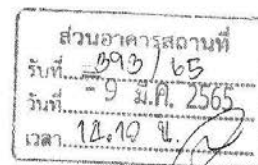 ส่วนอาคารสถานที่
รับที่ 393 / 65
วันที่ - 9 มี.ค. 2565
เวลา 14.10 น.